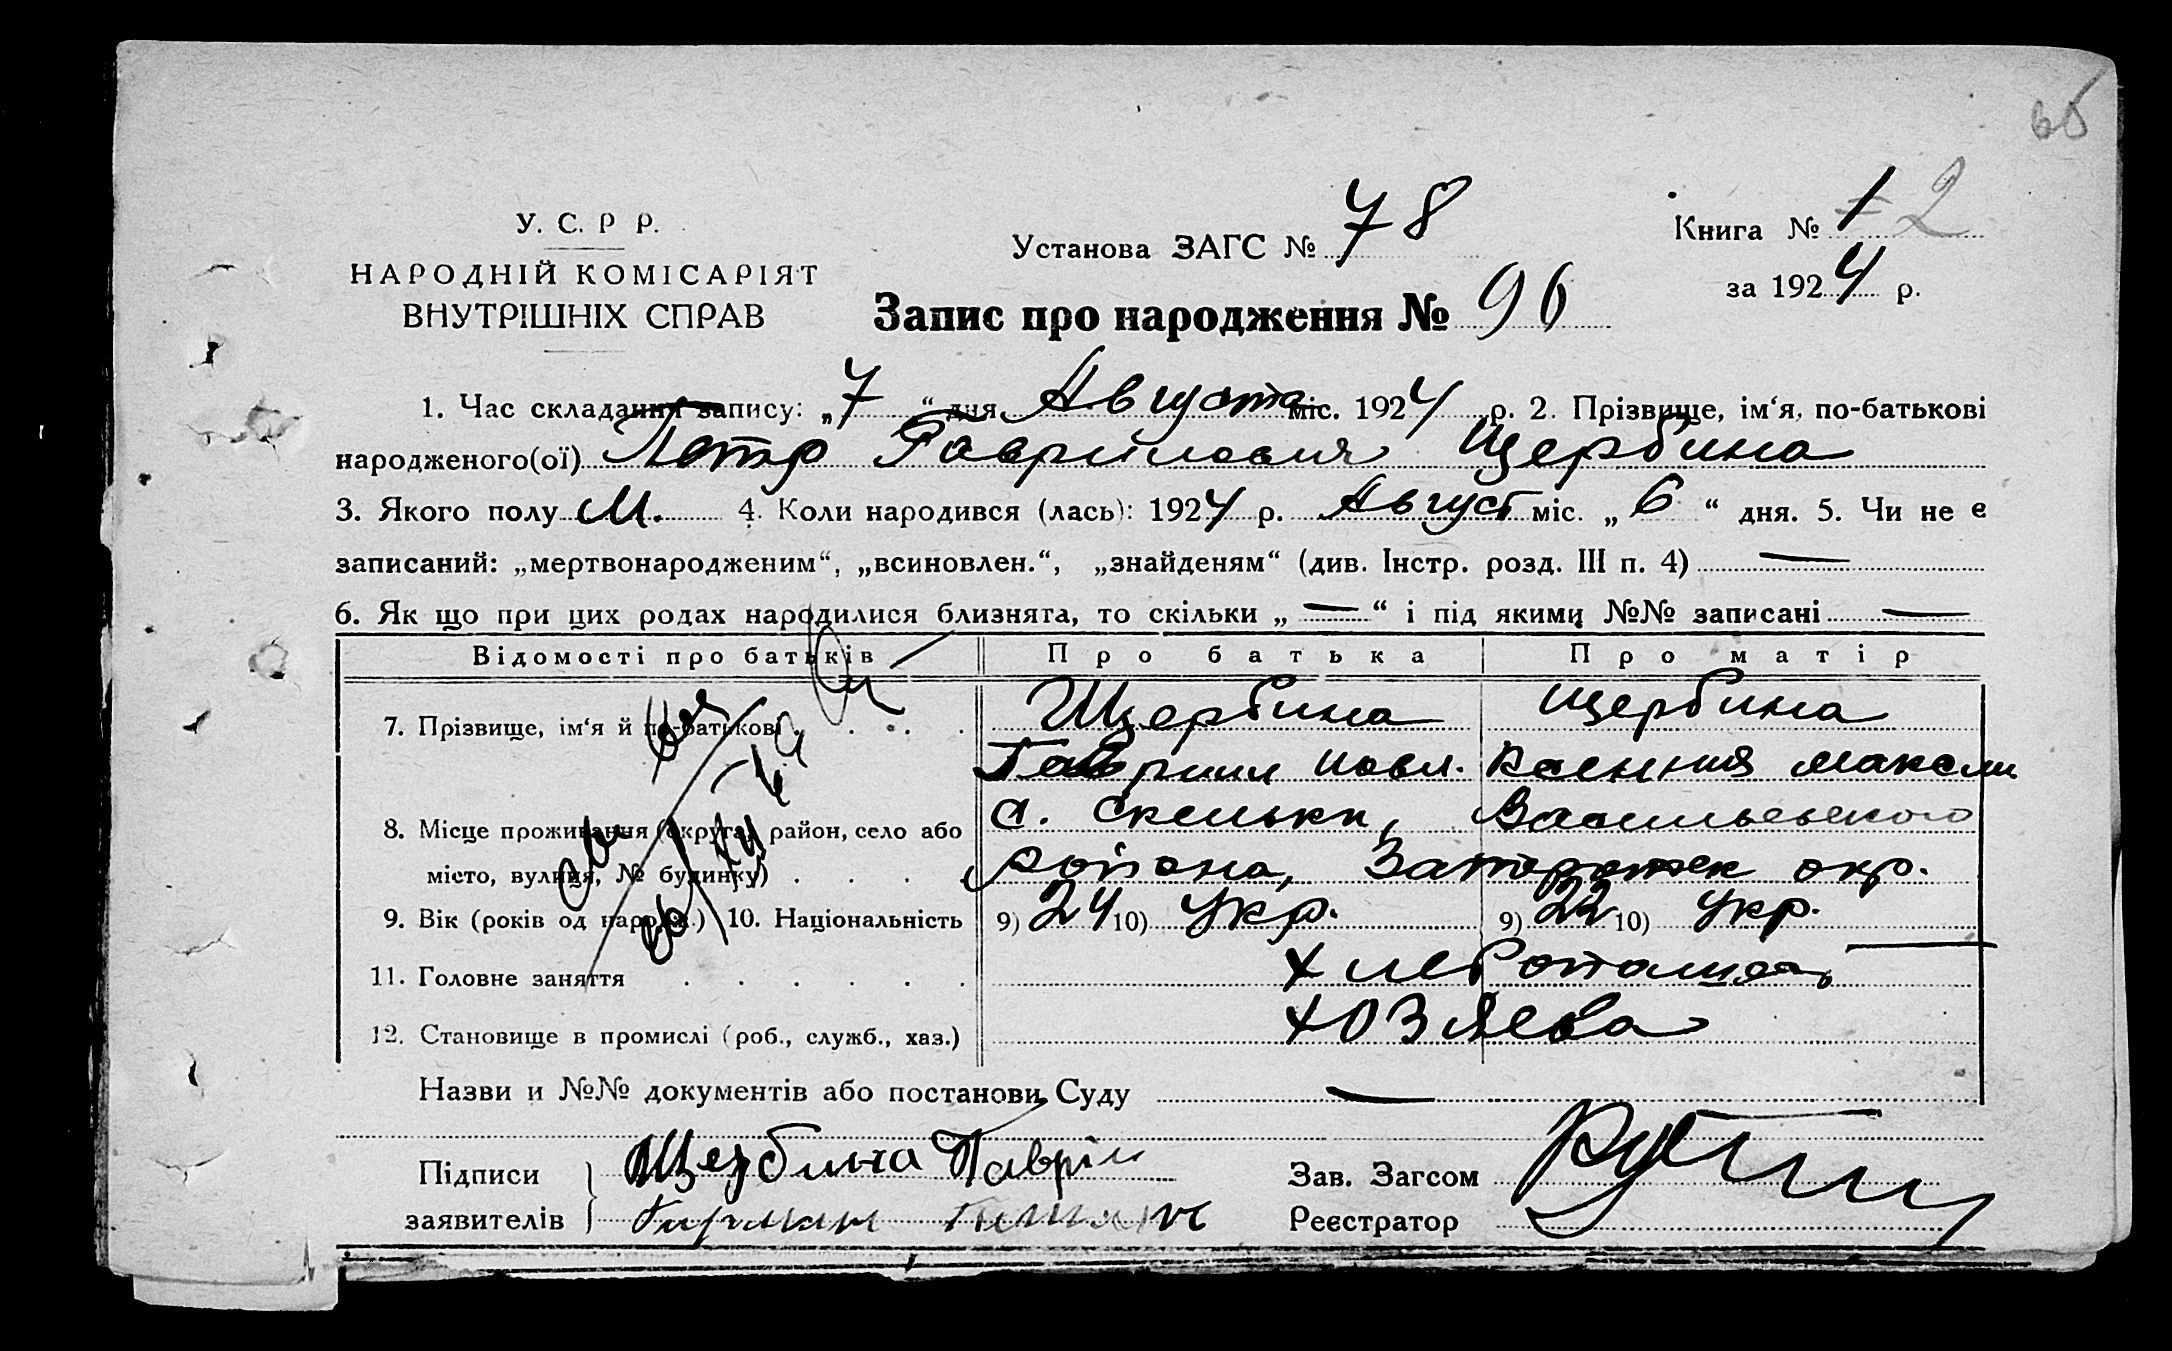 66
У. С. Р Р.
НАРОДНІЙ КОМІСАРІЯТ
ВНУТРІШНІХ СПРАВ
Установа ЗАГС № 78
Книга № 1 2
за 1924 р.
Запис про народження № 96
1. Час складання запису: „7“ дня Августа міс. 1924 р. 2. Прізвище, ім‘я, по-батькові
народженого(ої) Петр Гаврилович Щербина
3. Якого полу М. 4. Коли народився (лась): 1924 р. Август міс. „6“ дня. 5. Чи не є
записаний: „мертвонародженим“, „всиновлен.“, „знайденям“ (див. Інстр. розд. III п. 4) —
6. Як що при цих родах народилися близнята, то скільки „—“ і під якими №№ записані —
Відомості про батьків Про батька Про матір
7. Прізвище, ім‘я й по-батькові Щербина Щербина
Гавриил Павл. Ксенния Макси
8. Місце проживання (округа, район, село або с. Скельки, Васильевского
місто, вулиця, № будинку) района, Запорожск окр.
9. Вік (років од народж.) 10. Національність 9) 24 10) Укр. 9) 22 10) Укр.
11. Головне заняття
12. Становище в промислі (роб., служб., хаз.) хозяева
Назви и №№ документів або постанови Суду —
Підписи Щербина Гавріл Зав. Загсом
заявителів Реєстратор